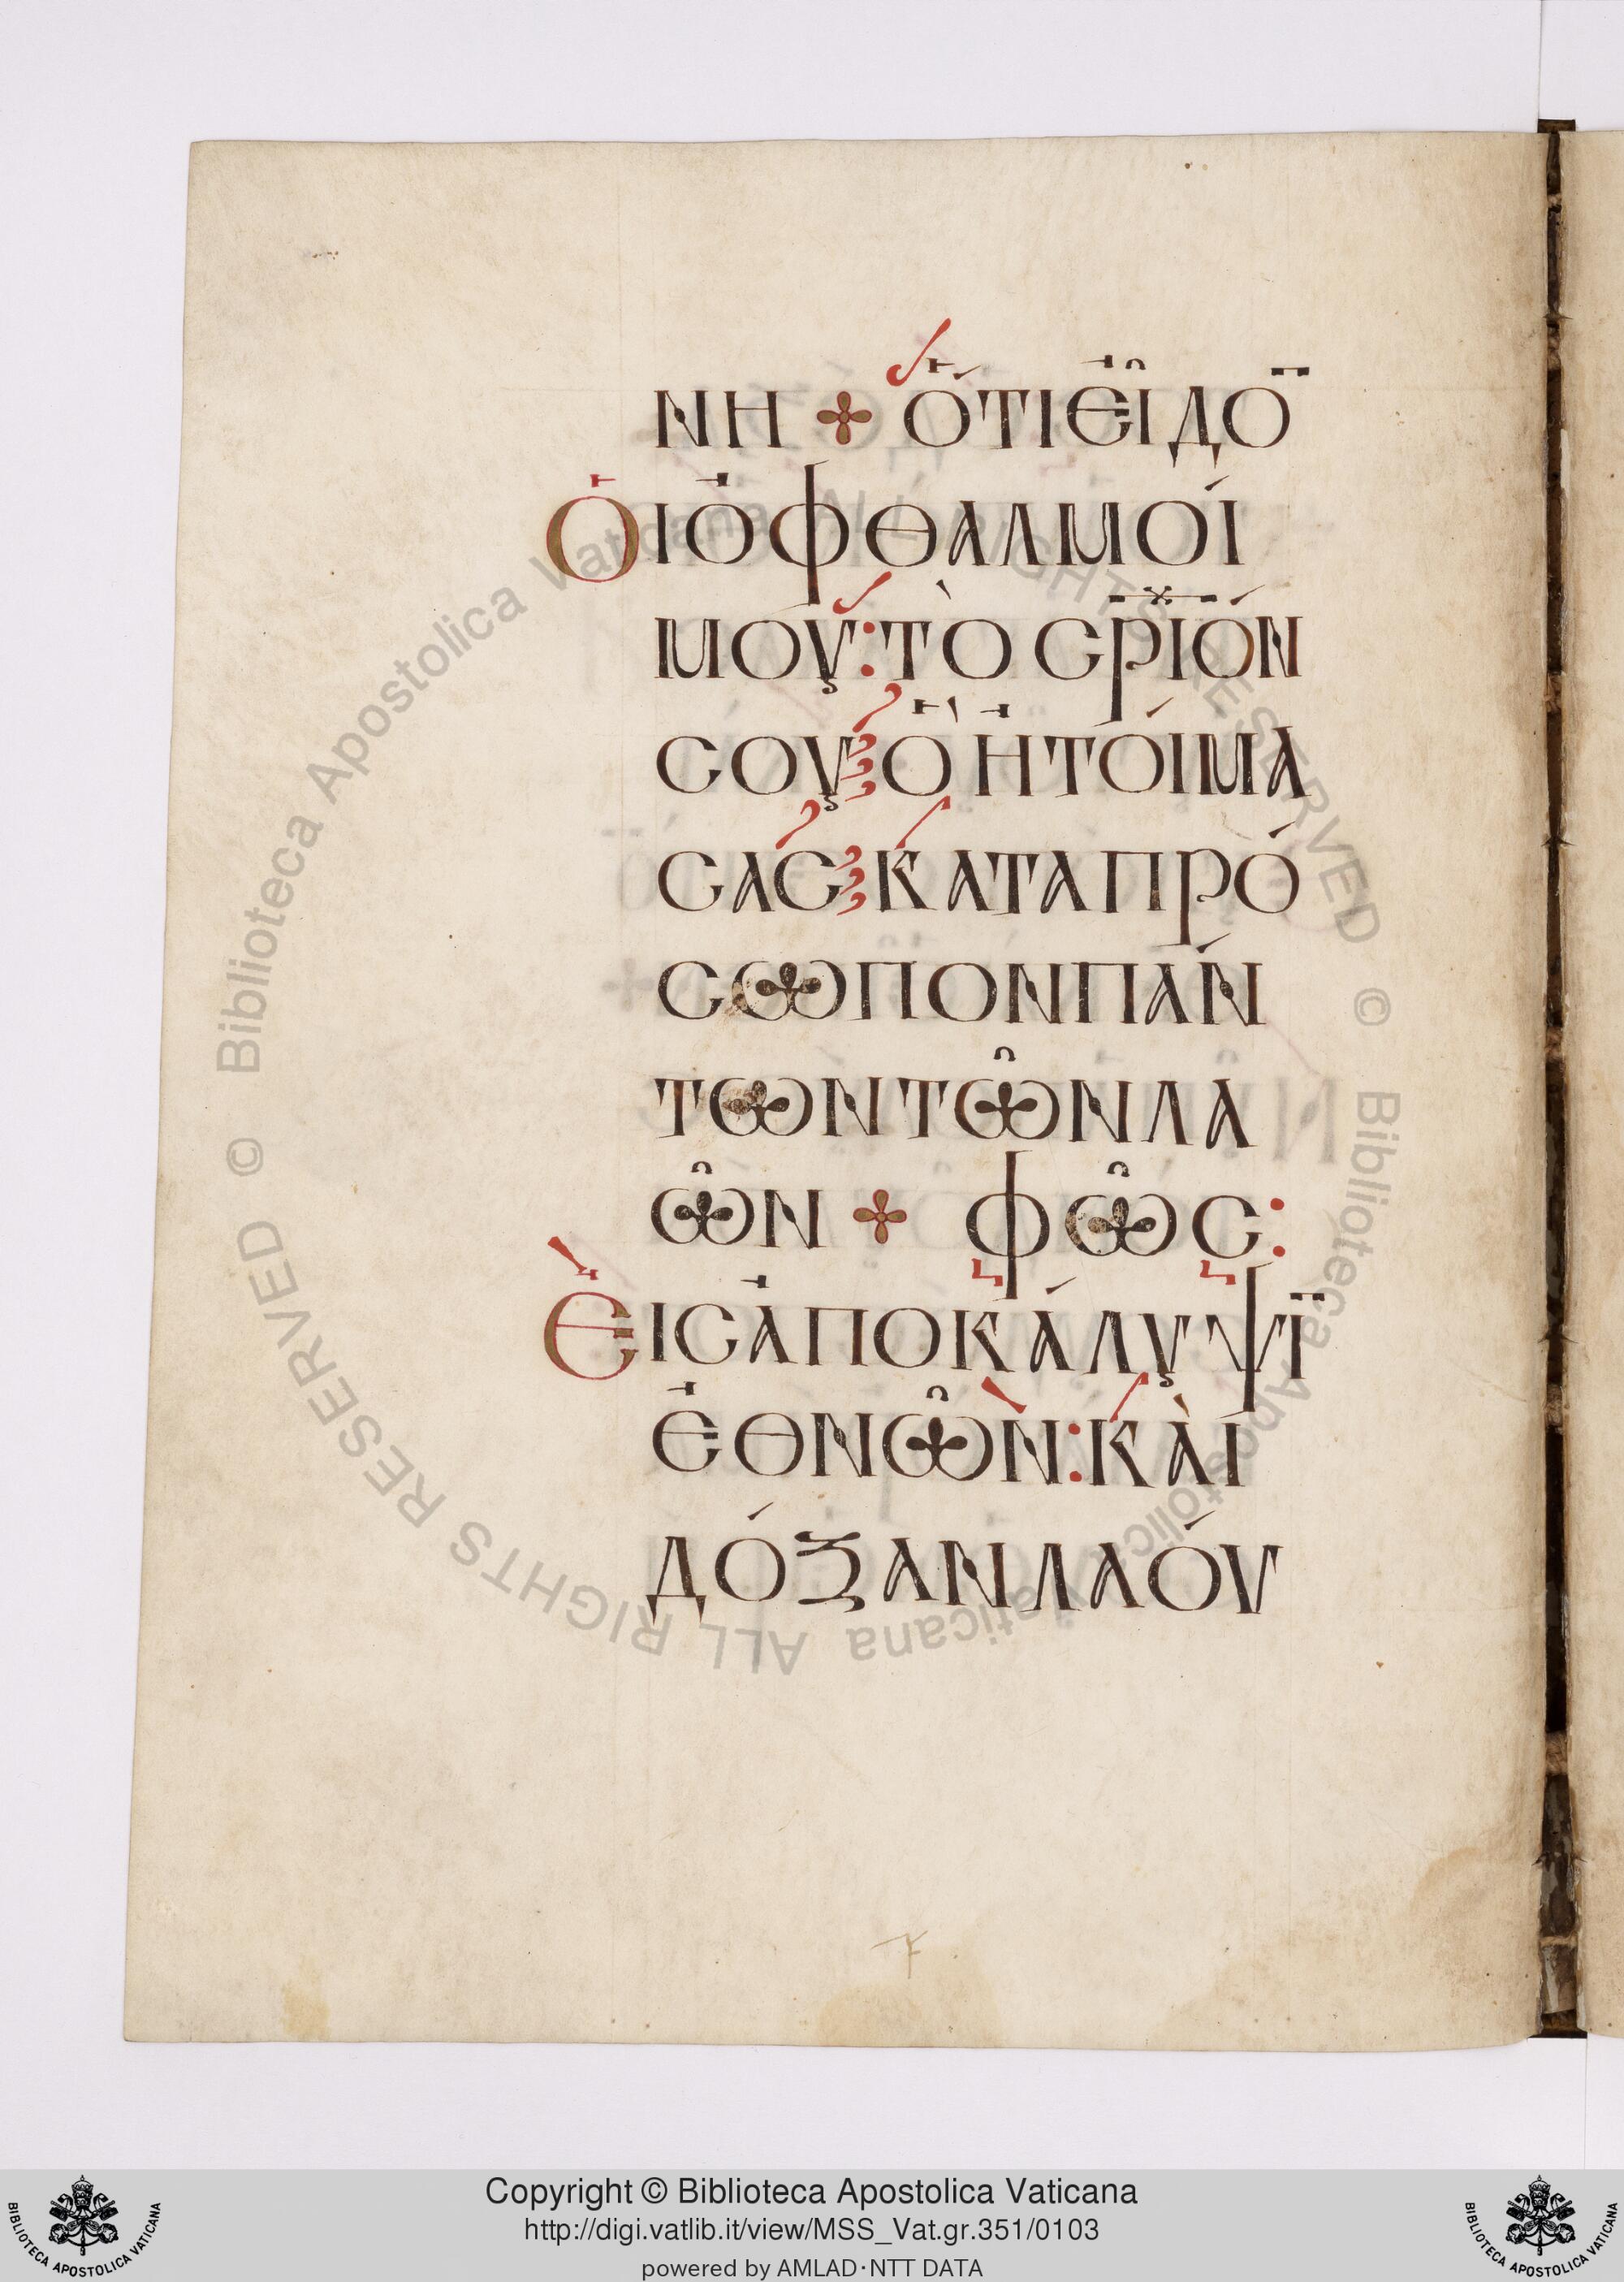 ΝΗ ✣ ὍΤΙ ΕἾΔΟΝ̈
ὉΙ ὈΦΘΑΛΜΟΊ
ΜΟΥ: ΤῸ ΣΡΙΌΝ
ΣΟΥ Ὃ ἩΤΟΊΜΑ
ΣΑΣ ΚΑΤΑ ΠΡΌ
ΣΩΠΟΝ ΠΆΝ
ΤΩΝ ΤΩ͂Ν ΛΑ
Ω͂Ν ✣ ΦΩ͂Σ:
ἘΙΣ ἈΠΟΚΆΛΥΨΪ
ἘΘΝΩ͂Ν: ΚᾺΙ
ΔΌΞΑΝ ΛΑΌΥ
© Biblioteca Apostolica Vaticana ALL RIGHTS RESERVED © Biblioteca Apostolica Vaticana ALL RIGHTS RESERVED
Copyright © Biblioteca Apostolica Vaticana
http://digi.vatlib.it/view/MSS_Vat.gr.351/0103
powered by AMLAD·NTT DATA
BIBLIOTECA APOSTOLICA VATICANA
BIBLIOTECA APOSTOLICA VATICANA